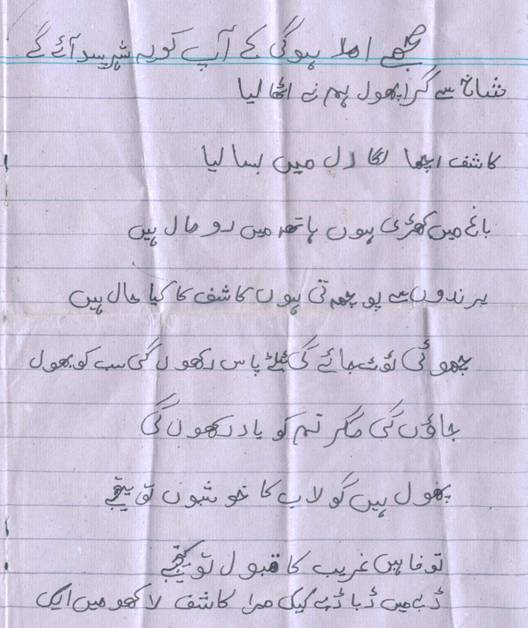 مجھے املا ہوگی کے آپ کو یہ شہر پسد آئے گے
شاخ سے گرا پھول ہم نے اٹھا لیا
کاشف اچھا لگا دل میں بسا لیا
باغ میں کھڑی ہوں ہاتھ میں رومال ہیں
پرندوں سے پوچھتی ہوں کاشف کا کیا حال ہیں
چھوئی ٹوٹ جائے گی پاس رکھوں گی سب کو بھول
جاؤں گی مگر تم کو یاد رکھوں گی
پھول ہیں گولاب کا خوشبوں تو
توفا ہیں غریب کا قبول تو کیجے
ڈبے میں ڈبا ڈبے کیک مرا کاشف لاکھو میں ایک